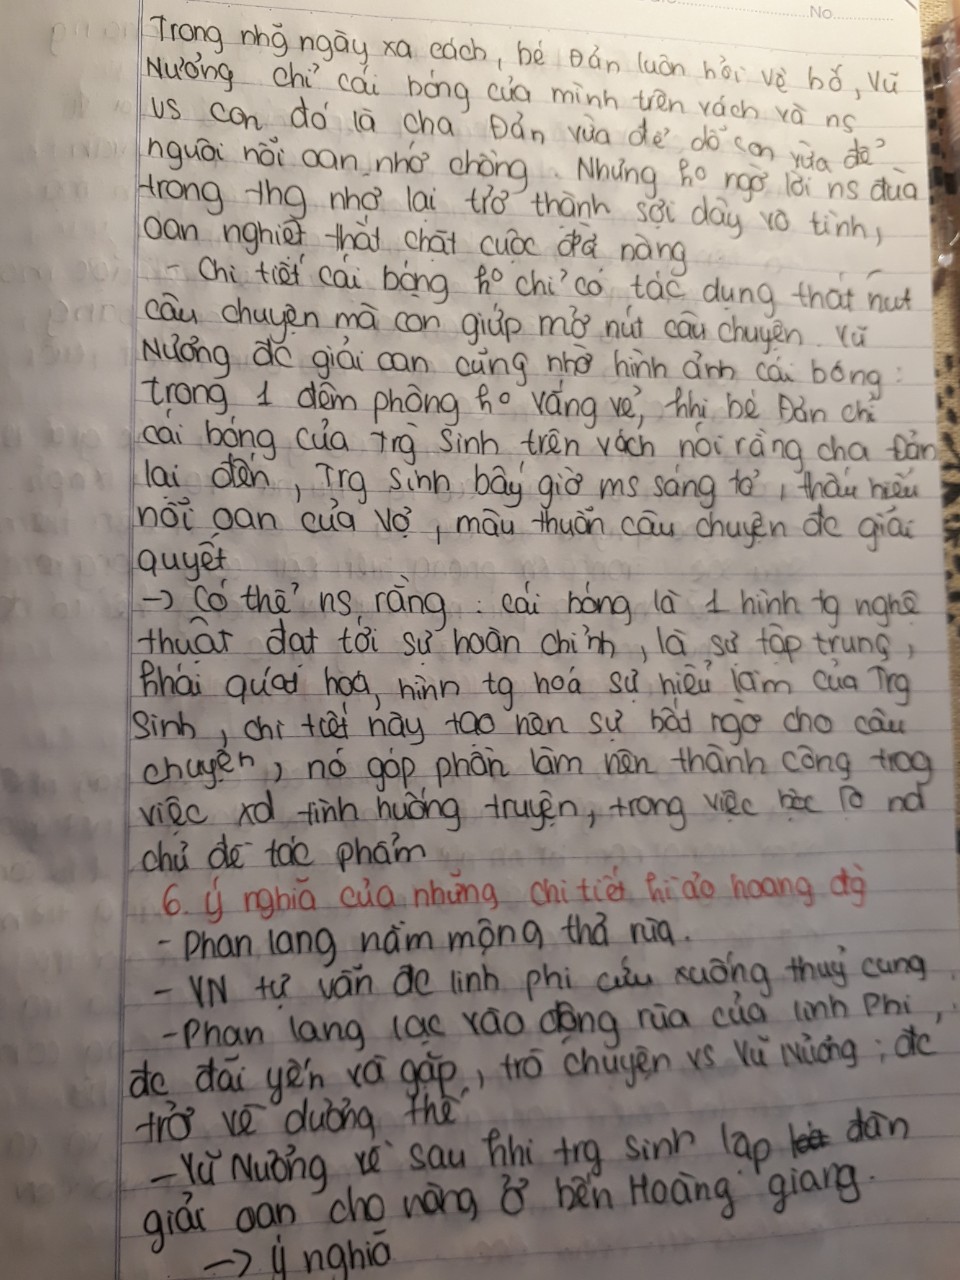 No
Trong nhg ngày xa cách, bé Đản luôn hỏi về bố, Vũ
Nương chỉ cái bóng của mình trên vách và ns
vs con đó là cha Đản vừa để dỗ con vừa để
người nỗi oan nhớ chồng. Nhưng ko ngờ lời ns đùa
trong thg nhớ lại trở thành sợi dây vô tình,
oan nghiệt thắt chặt cuộc đời nàng
- Chi tiết cái bóng ko chỉ có tác dụng thắt nút
câu chuyện mà còn giúp mở nút câu chuyện. Vũ
Nương đc giải oan cũng nhờ hình ảnh cái bóng:
trong 1 đêm phòng ko vắng vẻ, khi bé Đản chỉ
cái bóng của Trg Sinh trên vách nói rằng cha Đản
lại đến, Trg Sinh bấy giờ ms sáng tỏ, thấu hiểu
nỗi oan của vợ, mâu thuẫn câu chuyện đc giải
quyết
-> Có thể ns rằng: cái bóng là 1 hình tg nghệ
thuật đạt tới sự hoàn chỉnh, là sự tập trung,
khái quát hoá, hình tg hoá sự hiểu lầm của Trg
Sinh, chi tiết này tạo nên sự bất ngờ cho câu
chuyện, nó góp phần làm nên thành công trog
việc xd tình huống truyện, trong việc rõ nd
chủ đề tác phẩm
6. Ý nghĩa của những chi tiết kì ảo hoang đg
- Phan lang nằm mộng thả rùa.
- VN tự vẫn đc linh phi cứu xuống thuỷ cung
- Phan lang lạc vào động rùa của linh Phi,
đc đãi yến và gặp, trò chuyện vs Vũ Nương; đc
trở về dương thế
- Vũ Nương về sau khi trg sinh lập đàn
giải oan cho nàng ở bến Hoàng giang.
-> Ý nghĩa